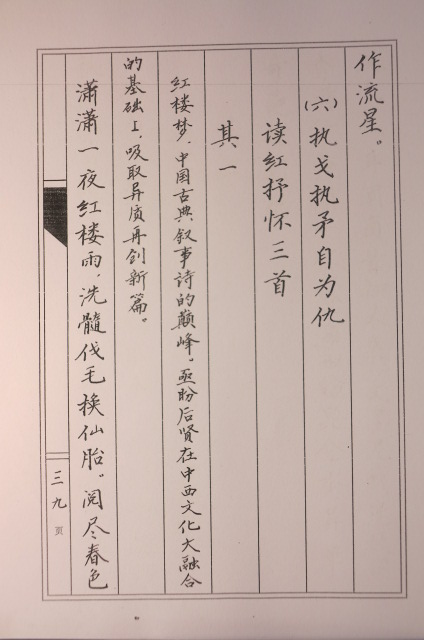 作流星。
(六)执戈执矛自为仇
读红抒怀三首
其一
红楼梦，中国古典叙事诗的巅峰。亟盼后贤在中西文化大融合
的基础上，吸取异质再创新篇。
潇潇一夜红楼雨，洗髓伐毛换仙胎。阅尽春色
三九页